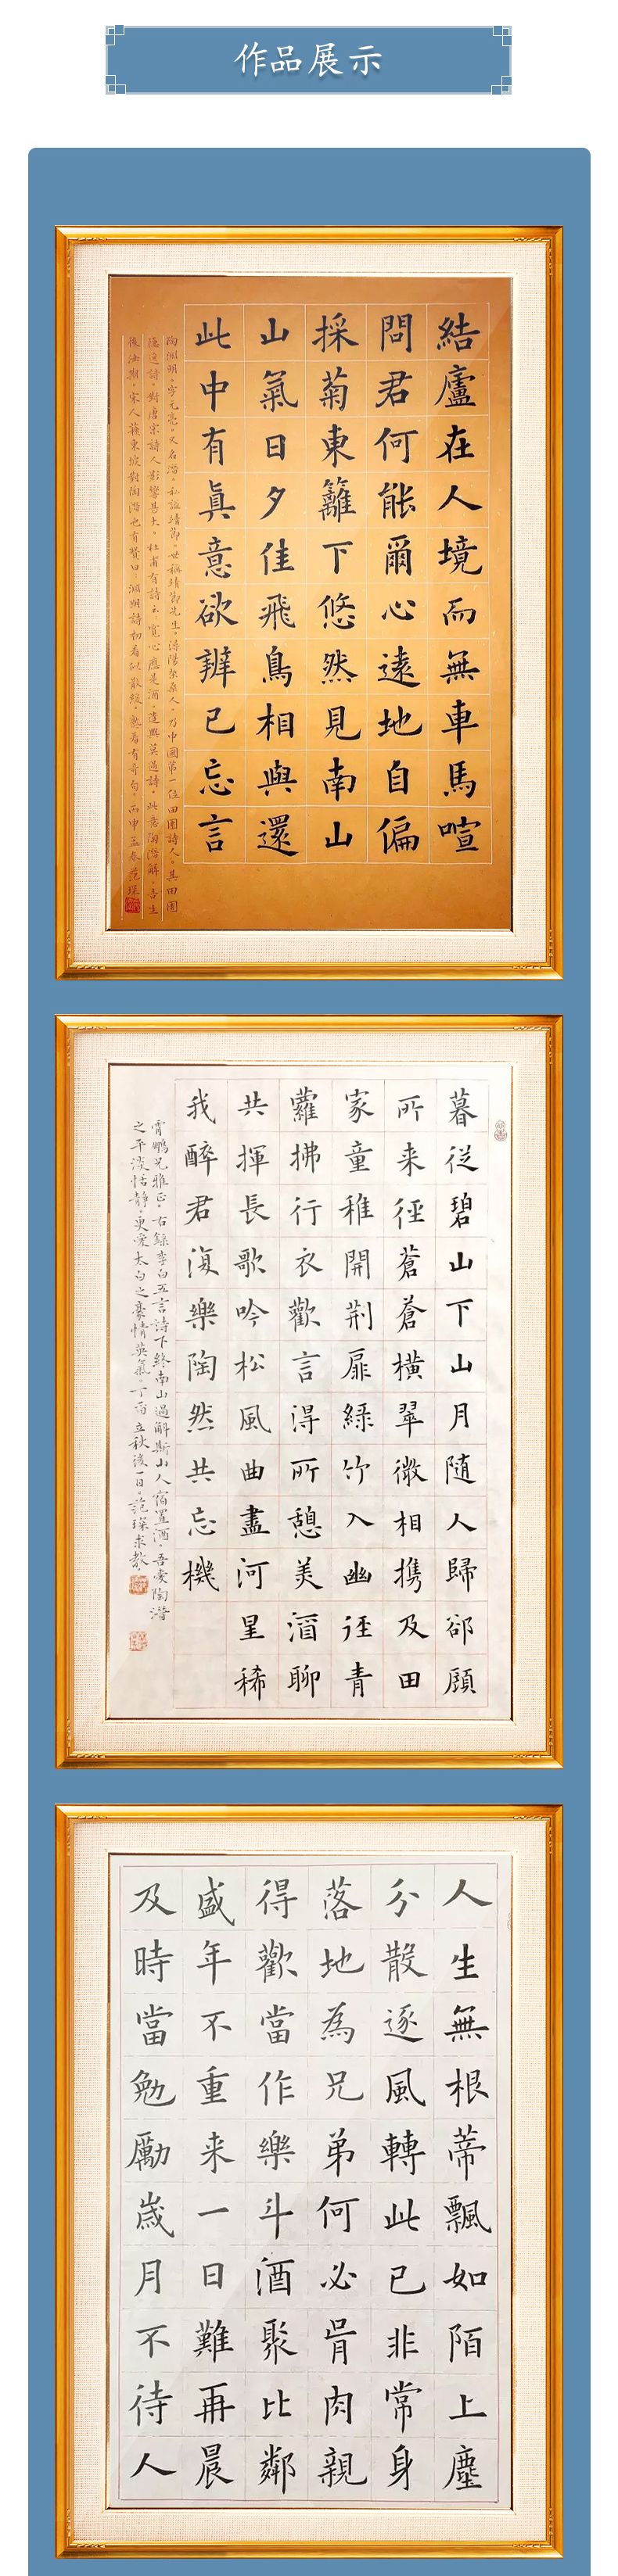 作品展示
結廬在人境而無車馬喧
問君何能爾心遠地自偏
採菊東籬下悠然見南山
山氣日夕佳飛鳥相與還
此中有眞意欲辨已忘言
陶淵明。字元亮。又名潛。私諡靖節。世稱靖節先生。潯陽柴桑人。乃中國第一位田園詩人。其田園
隱逸詩。對唐宋詩人影響甚大。杜甫有詩云。寬心應是酒。遣興莫過詩。此意陶潛解。吾生
後汝期。宋人蘇東坡對陶潛也有贊曰。淵明詩初看似散緩。熟看有奇句。丙申孟春范琛
暮從碧山下山月隨人歸郤顧
所来徑蒼蒼橫翠微相携及田
家童稚開荆扉綠竹入幽徑青
蘿拂行衣歡言得所憩美酒聊
共揮長歌吟松風曲盡河星稀
我醉君復樂陶然共忘機
霄鵬兄雅正。右錄李白五言詩下終南山過斛斯山人宿置酒。吾愛陶潛
之平淡恬靜。更愛太白之豪情英氣。丁酉立秋後一日。范琛求教
人生無根蒂飄如陌上塵
分散逐風轉此已非常身
落地為兄弟何必骨肉親
得歡當作樂斗酒聚比鄰
盛年不重来一日難再晨
及時當勉勵歲月不待人